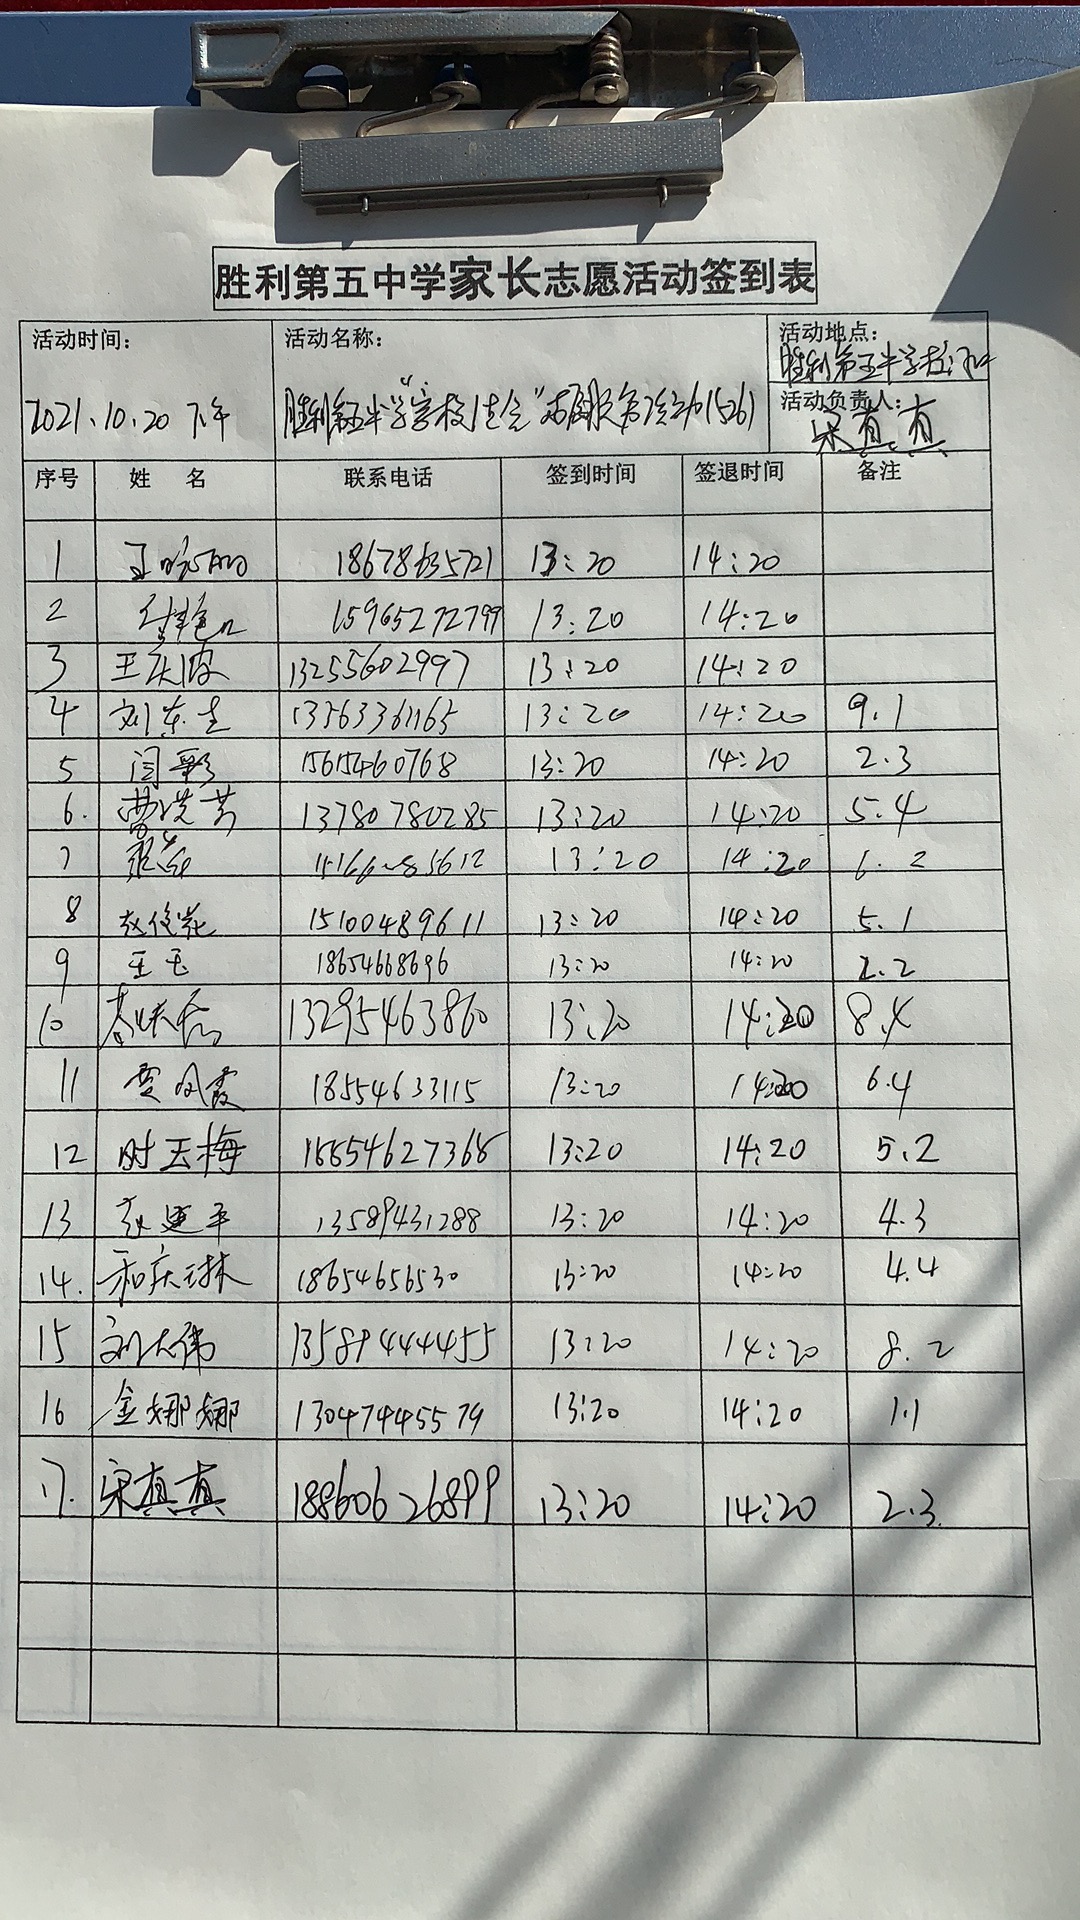 胜利第五中学家长志愿活动签到表
活动时间: 2021.10.20 下午
活动名称: 胜利第五中学"家校
活动地点: 胜利第五中学校门口
活动负责人: 宋真真
序号 姓 名 联系电话 签到时间 签退时间 备注
1 13:20 14:20
2 15965272799 13:20 14:20
3 王庆波 13255602997 13:20 14:20
4 刘东 13563361165 13:20 14:20 9.1
5 闫彩 15615460768 13:20 14:20 2.3
6. 13780780285 13:20 14:20 5.4
7 13:20 14:20 6.2
8 15100489611 13:20 14:20 5.1
9 王玉 18654668696 13:20 14:20 2.2
10 13295463860 13:20 14:20 8.4
11 贾凤霞 18554633115 13:20 14:20 6.4
12 时玉梅 18854627368 13:20 14:20 5.2
13 13589431288 13:20 14:20 4.3
14. 18654656530 13:20 14:20 4.4
15 刘大伟 13589444455 13:20 14:20 8.2
16 金娜娜 13047445579 13:20 14:20 1.1
17. 宋真真 18860626899 13:20 14:20 2.3